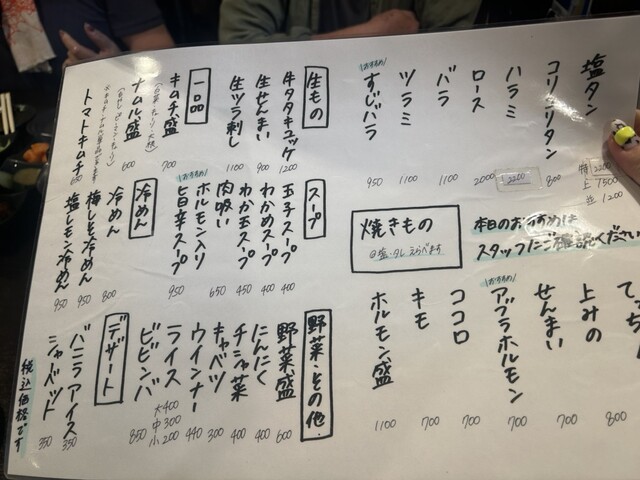 塩タン
特 2200
上 1500
並 1200
コリコリタン 800
ハラミ 2200
ロース 2000
バラ 1100
ツラミ 1100
おすすめ
すじバラ 950
本日のおすすめは
スタッフにご確認ください
焼きもの
◎塩・タレえらべます
てっちゃん 800
上みの
せんまい 700
おすすめ
アブラホルモン 700
ココロ 700
キモ 700
ホルモン盛 1100
生もの
牛タタキユッケ 1200
生せんまい 900
生ヅラ刺し 1100
一品
キムチ盛 700
ナムル盛 600
トマトキムチ
スープ
玉子スープ 400
わかめスープ 400
わか玉スープ 450
肉吸い 650
おすすめ
ホルモン入り
旨辛スープ 950
冷めん
冷めん 800
梅しそ冷めん 950
塩レモン冷めん 950
野菜・その他
野菜盛 600
にんにく 400
チシャ菜 400
キャベツ 300
ウインナー 440
ライス
大400
中300
小200
ビビンバ 850
デザート
バニラアイス 350
シャーベット 350
税込価格です